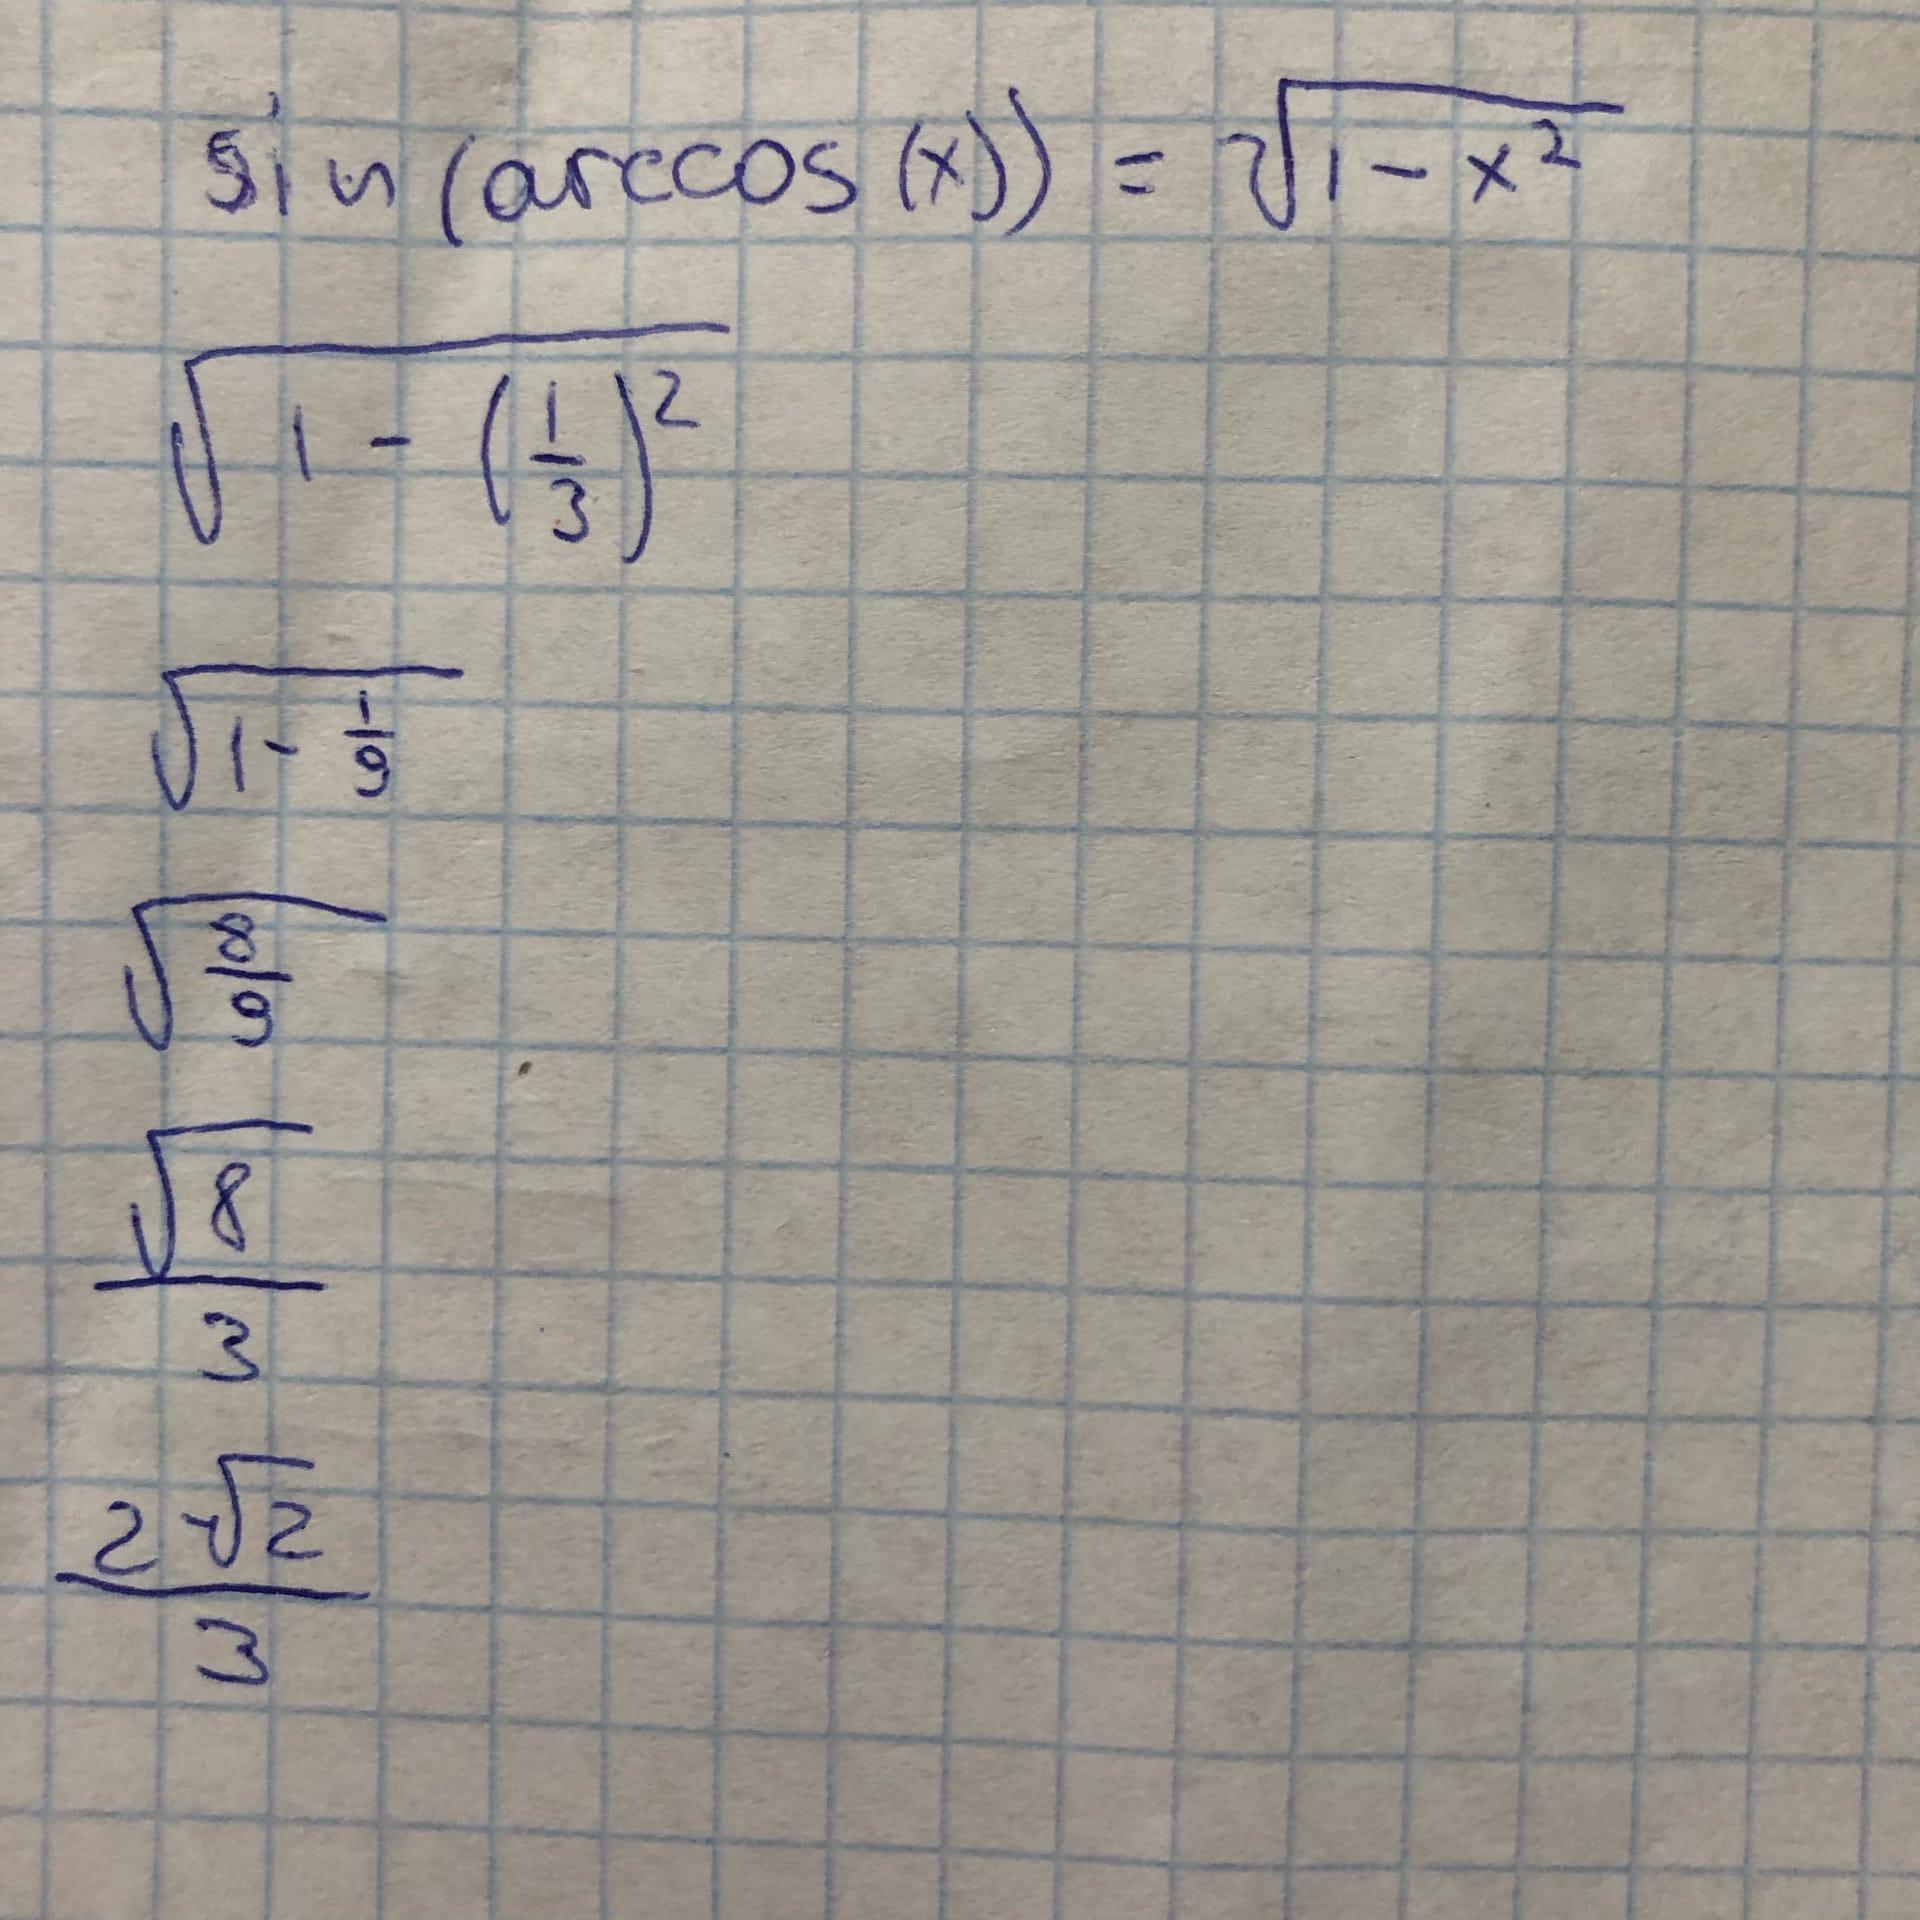 sin (arccos (x)) = √(1 - x²)
√(1 - (1/3)²)
√(1 - 1/9)
√(8/9)
√8/3
2√2/3